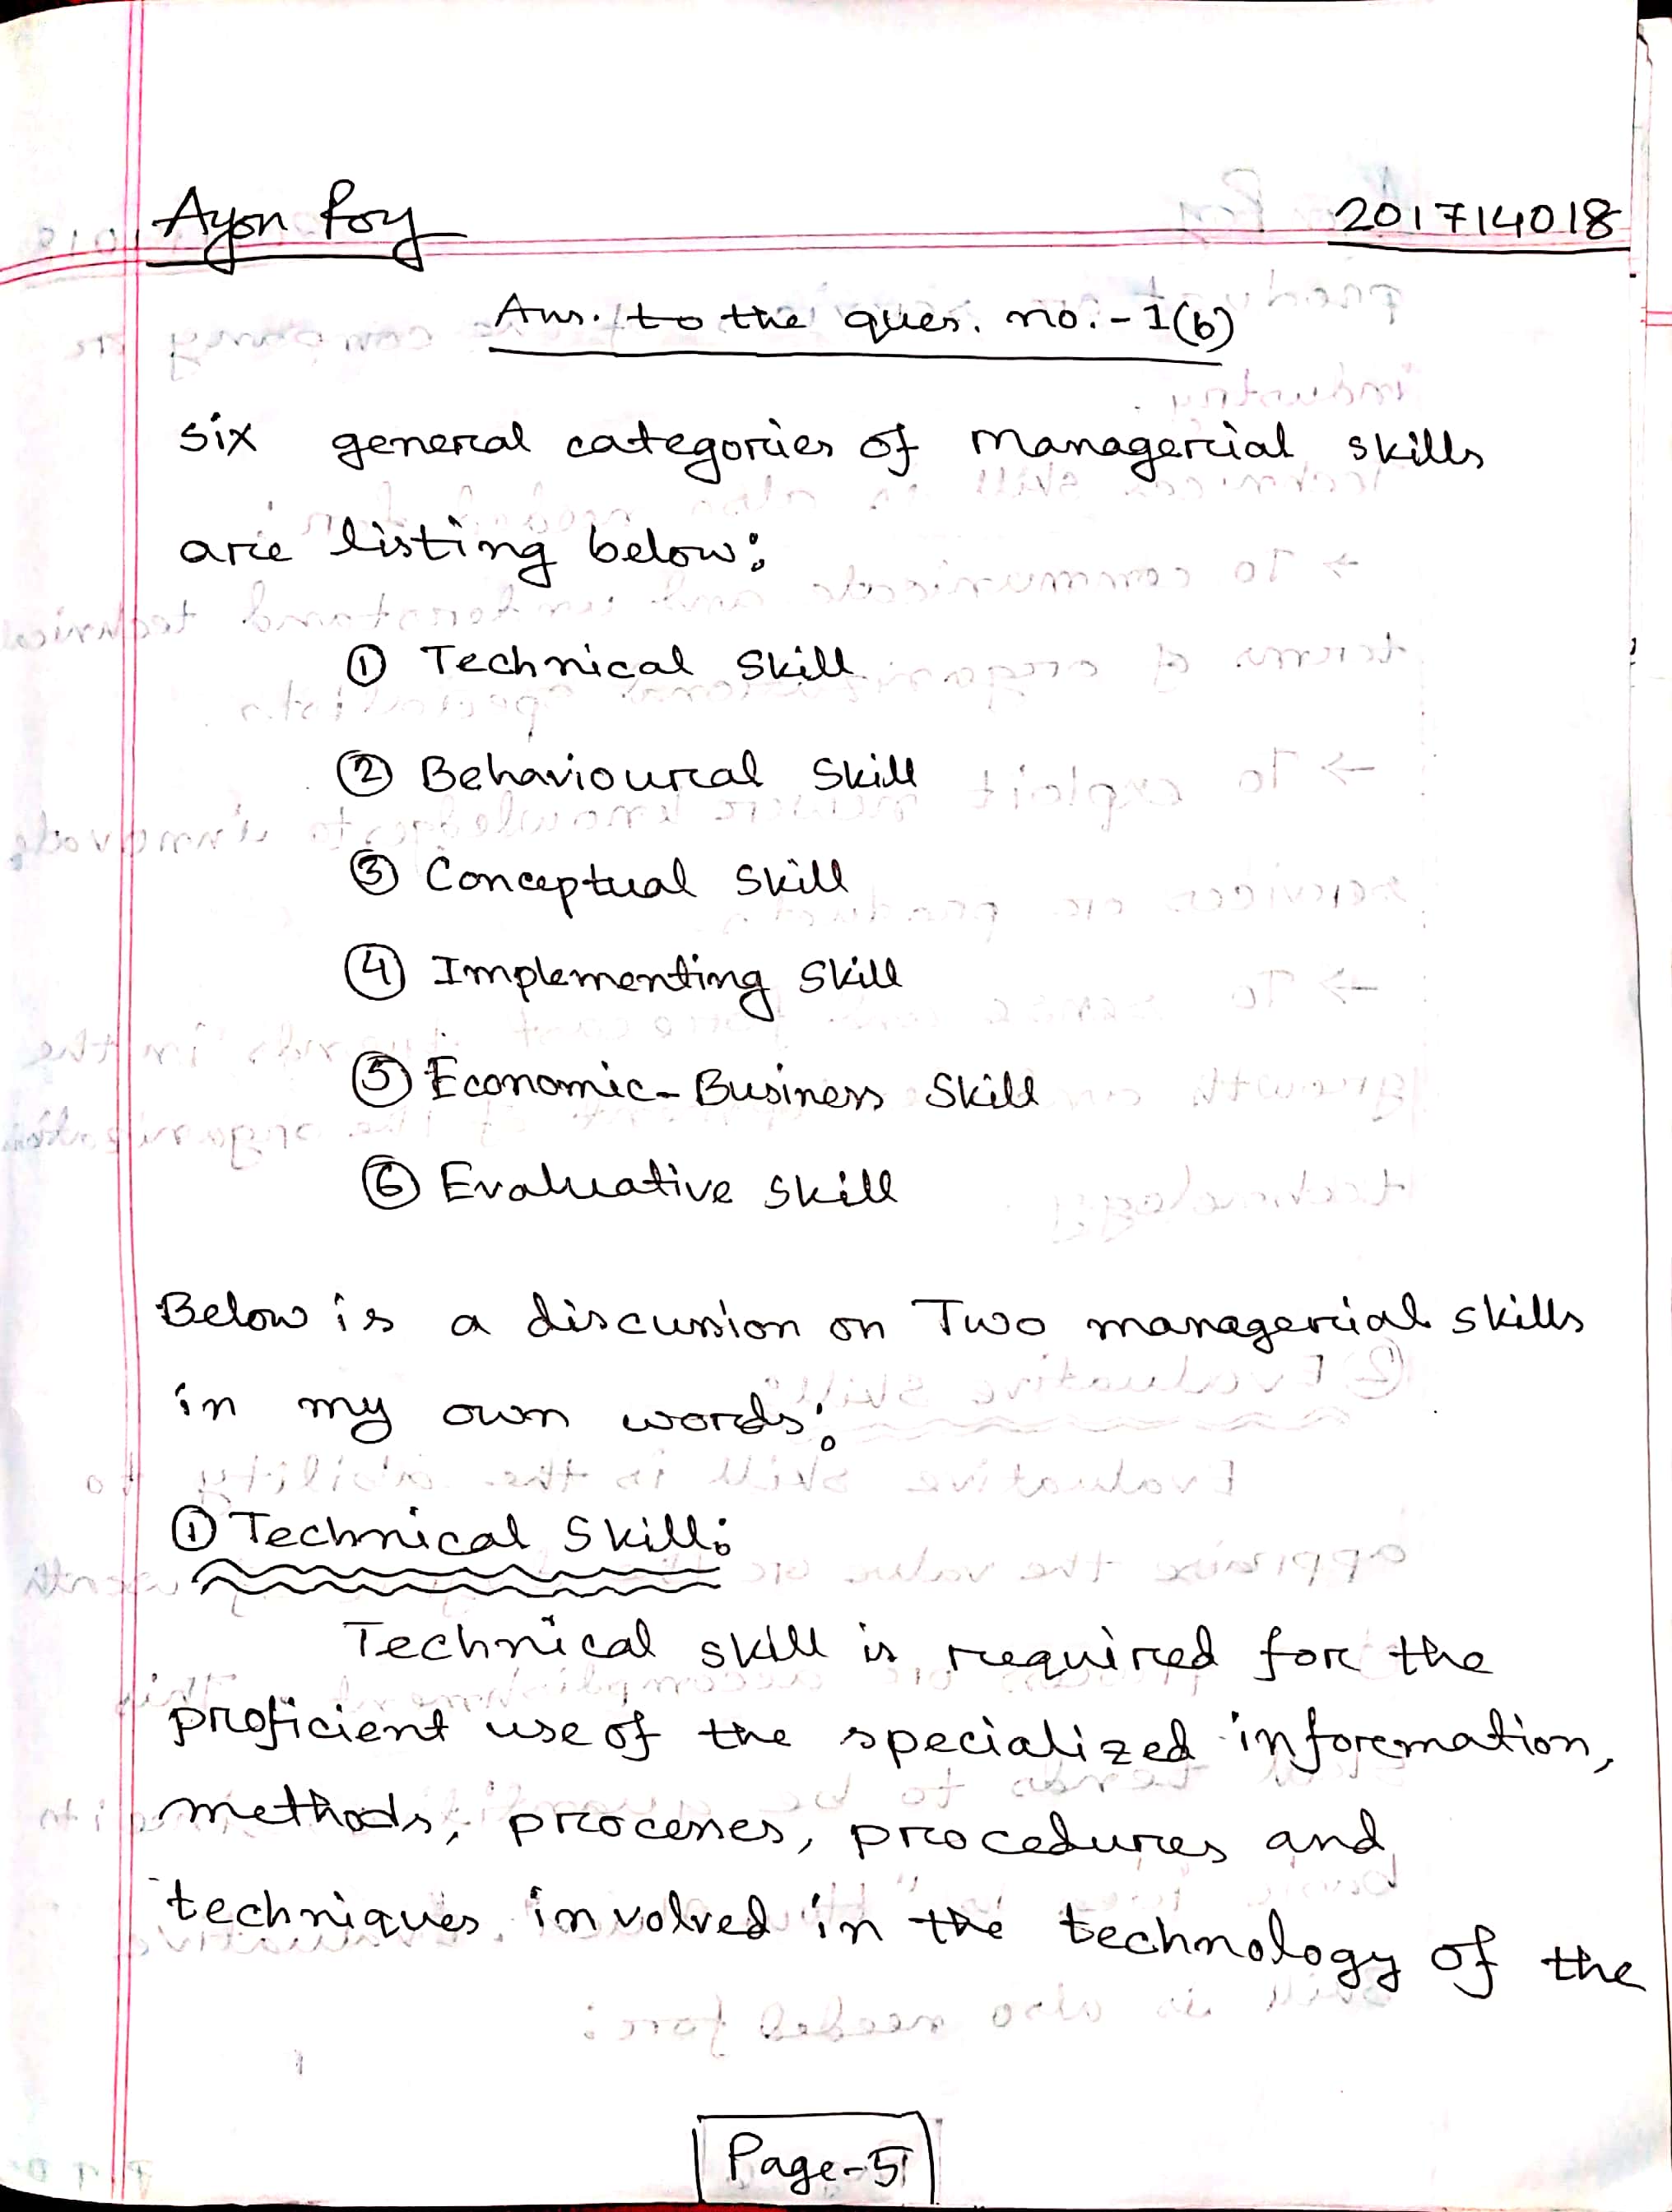 Ayon Roy 201714018
Ans. to the ques. no.-1(b)
six general categories of managerial skills
are listing below:
① Technical Skill
② Behavioural Skill
③ Conceptual Skill
④ Implementing Skill
⑤ Economic-Business Skill
⑥ Evaluative Skill
Below is a discussion on Two managerial skills
in my own words:
① Technical Skill:
Technical skill is required for the
proficient use of the specialized information,
methods, processes, procedures and
techniques involved in the technology of the
Page-5